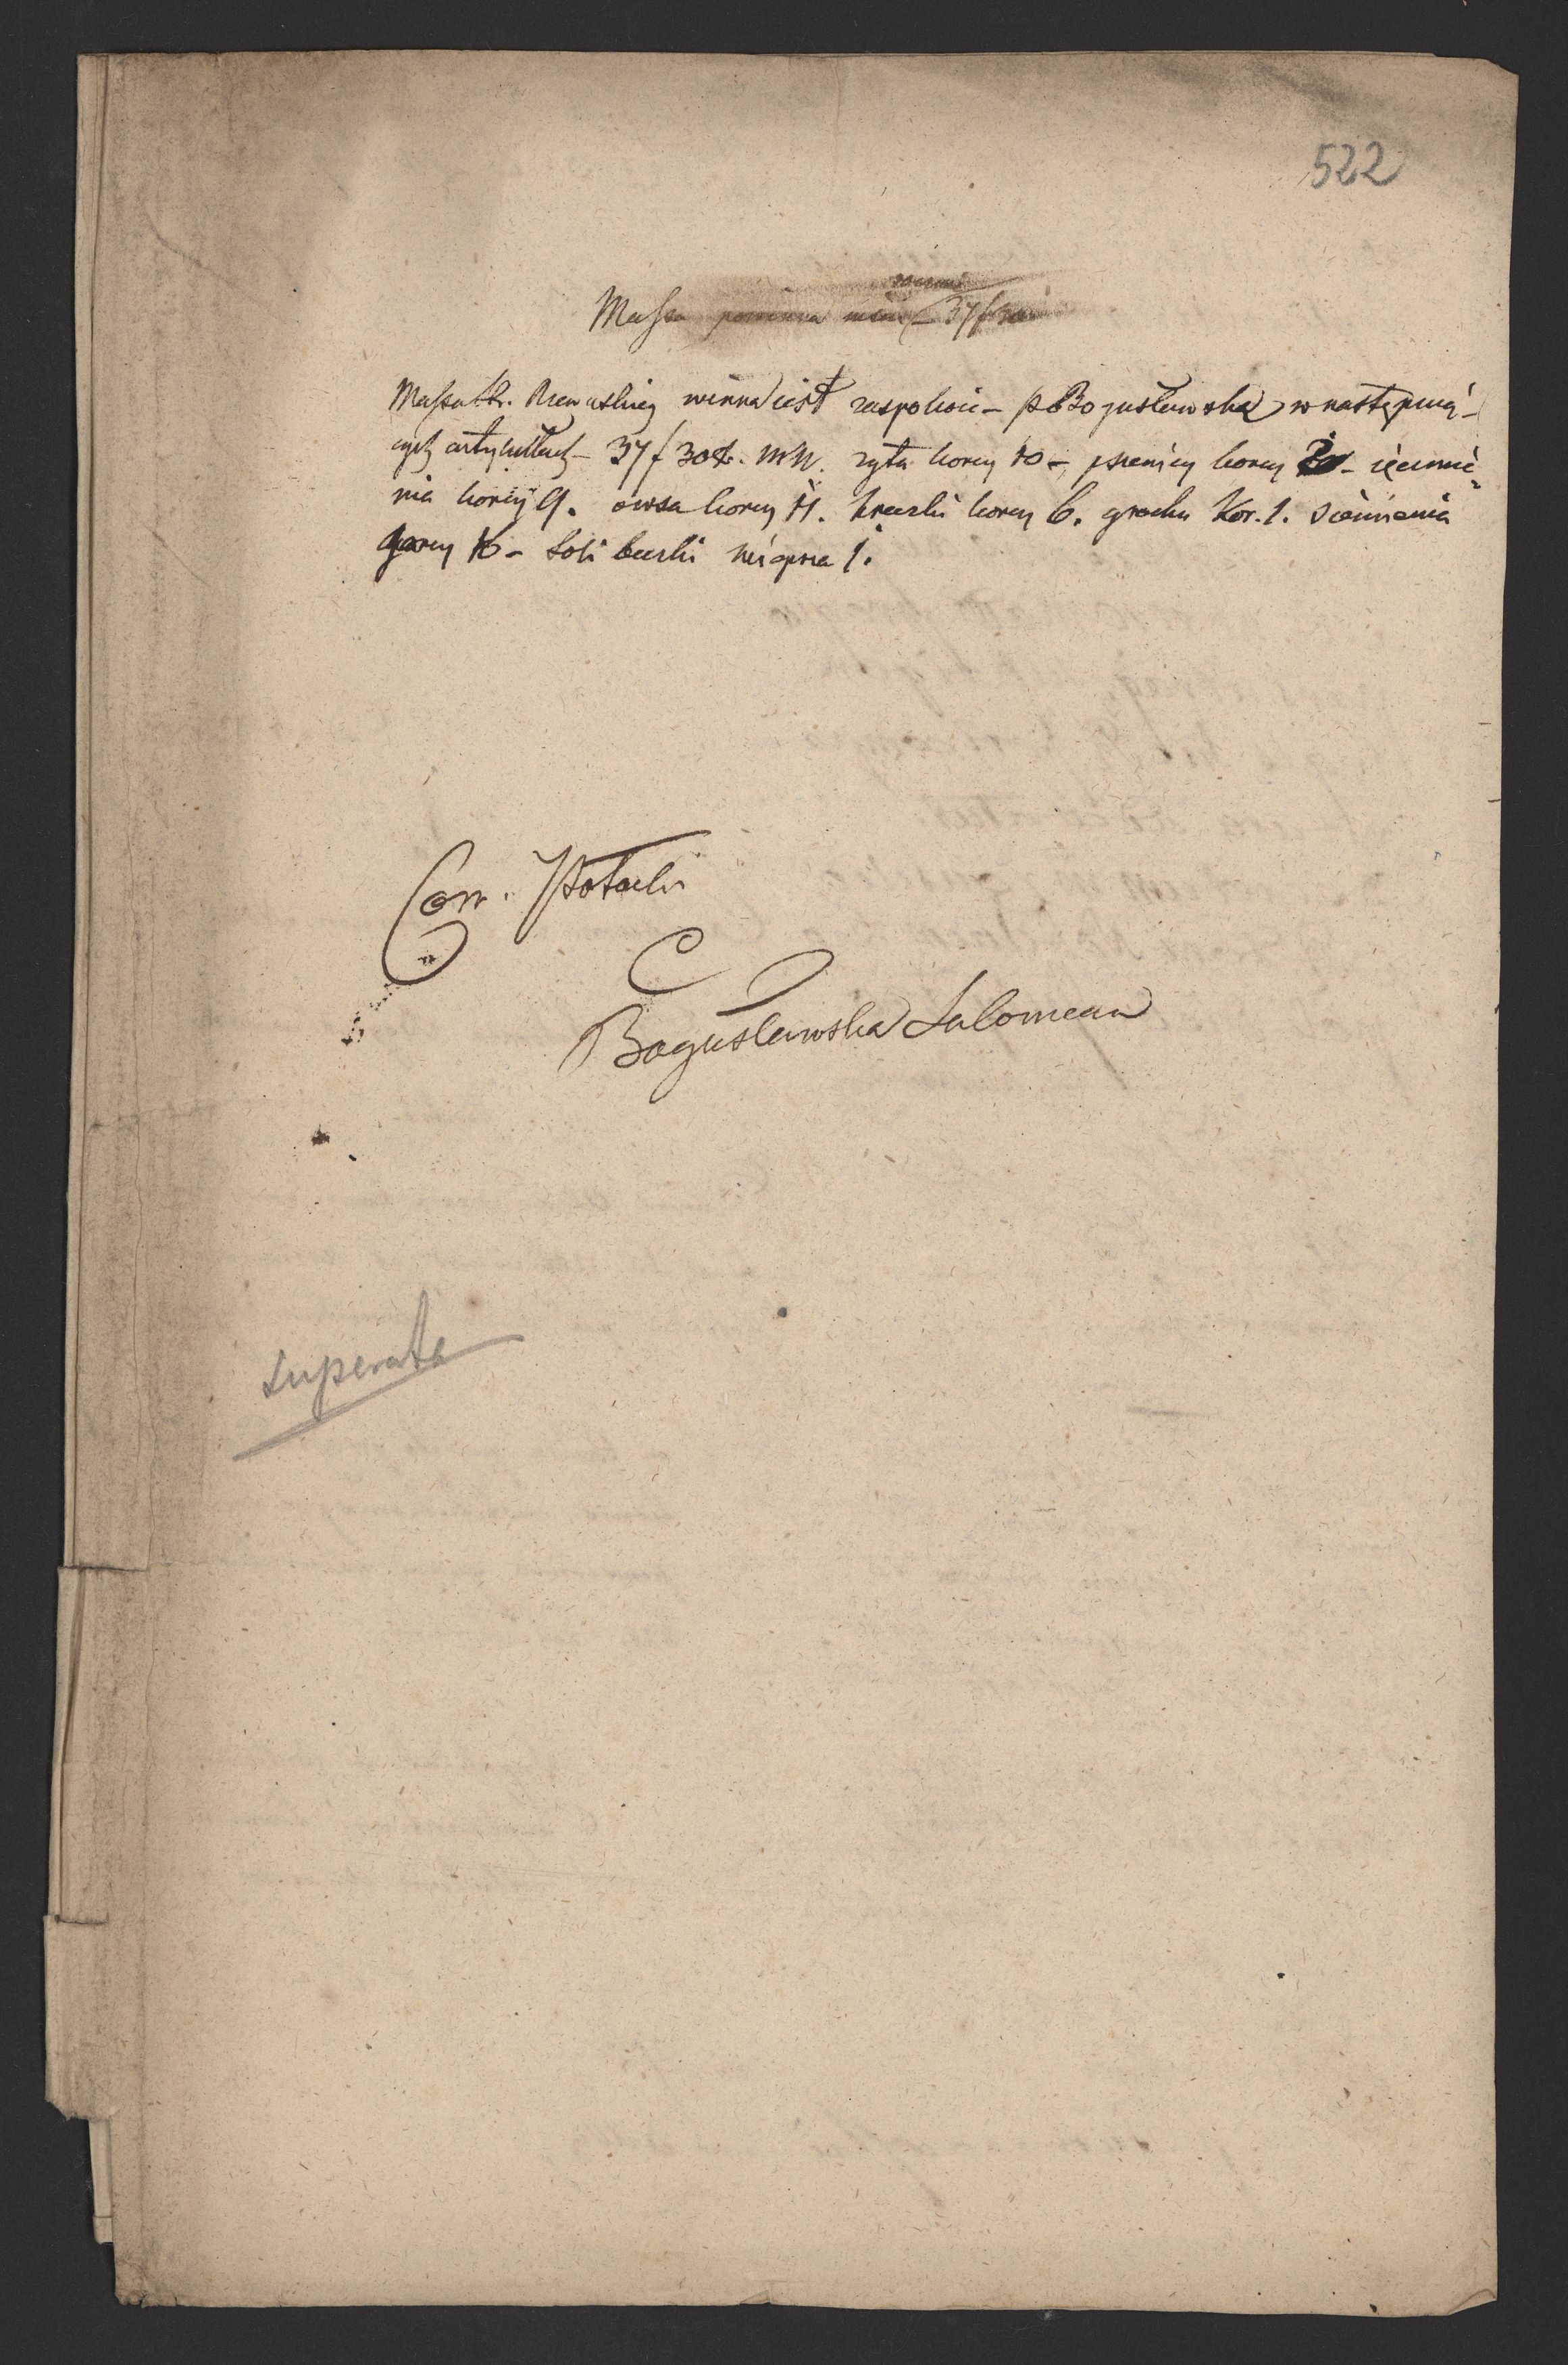 522
Massa powinna 37 f 30
Massa Hr. Rzewuskiey winna iest zaspokoić – P Bogusławską w następuią-
cych artykułach – 37 f 30 x. M.K. żyta korcy 10 – pszenicy korcy – ięczmie-
nia korcy 9. owsa korcy 11. hreczki korcy 6. grochu Kor. 1. siemienia
garcy 16 – Soli beczki wieprza 1.
Con. Potocki
Bogusławska Salomea
superata